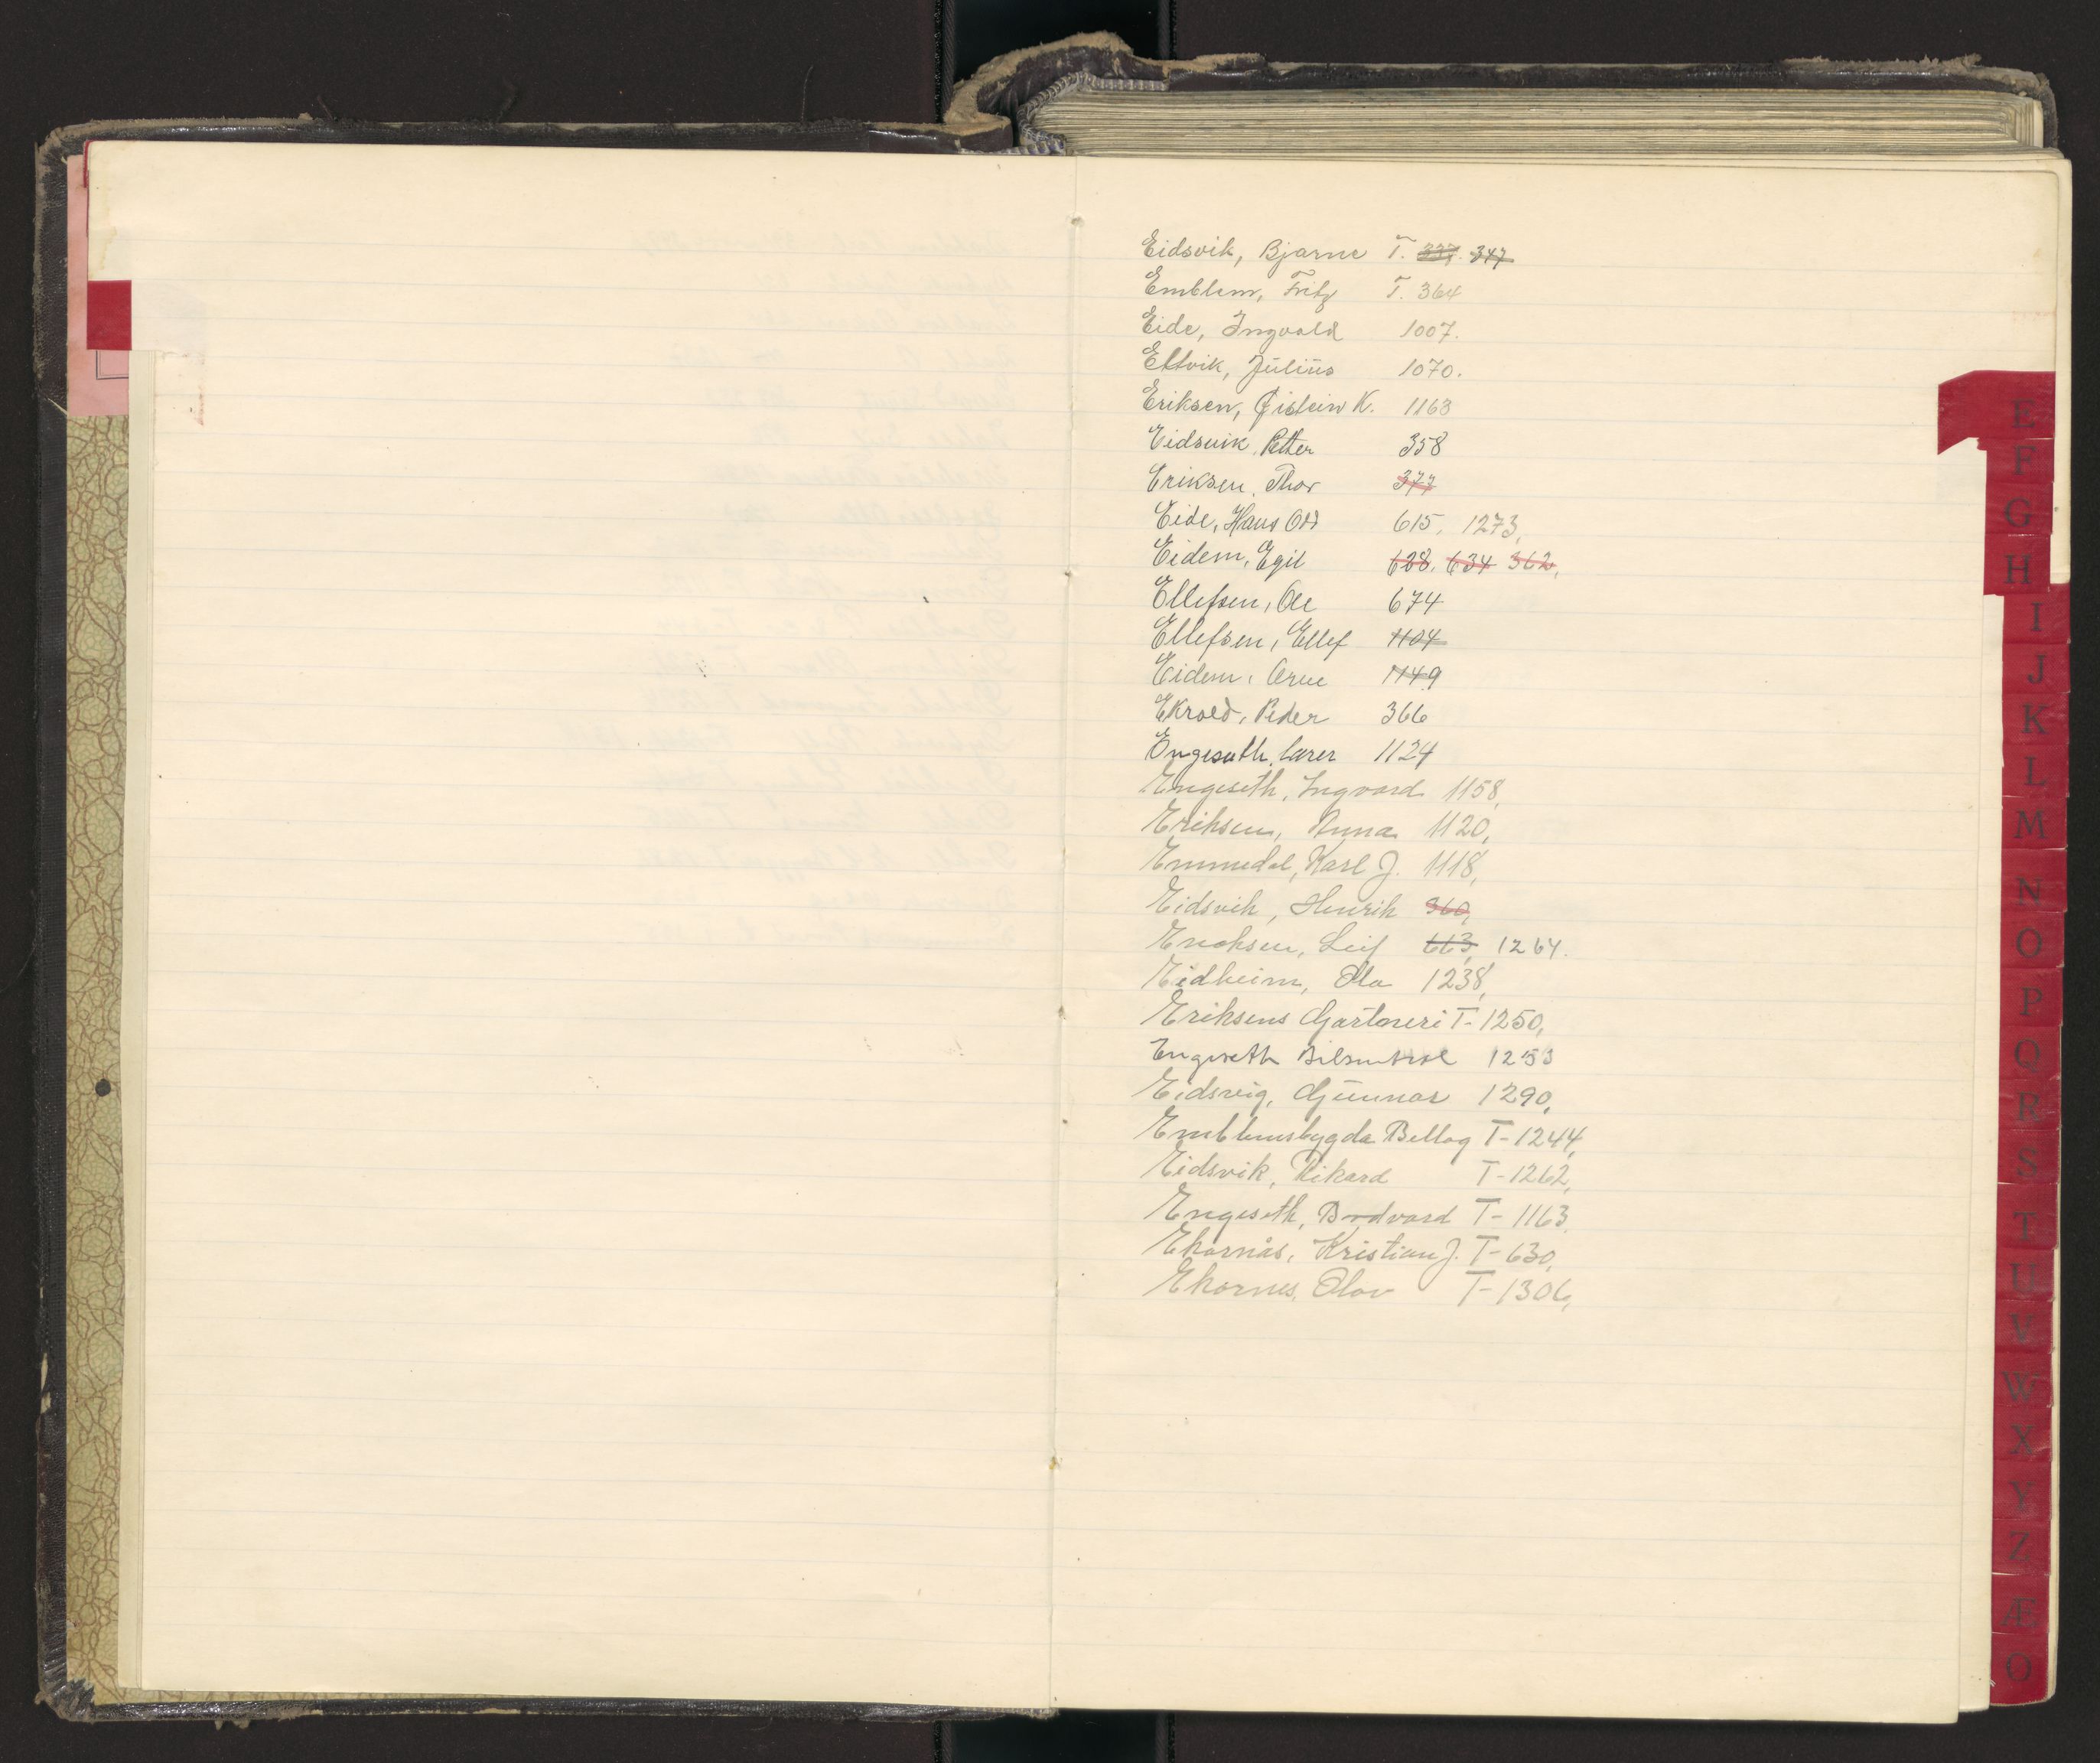 Eidsvik, Bjarne T. 337. 347
Emblem, Fritz T. 364
Eide, Ingvald 1007.
Eltvik, Julius 1070.
Eriksen, Øistein K. 1163
Eidsvik, Petter 358
Eriksen, Thor 377
Eide, Hans Odd 615, 1273,
Eidem, Egil 628, 634 362,
Ellefsen, Ole 674
Ellefsen, Ellef 1104
Eidem, Arne 1149
Ekrold, Peder 366
Engeseth, 1124
Engeseth, Ingvard 1158,
Eriksen, Anna 1120,
Emmedal, Karl J. 1118,
Eidsvik, Henrik 360,
Erichsen, Leif 663, 1264.
Eidheim, Ola 1238,
Eriksens Gartneri T-1250,
Engeseth Bilsentral 1253
Eidsvig, Gunnar 1290,
Emblemsbygda Bellag T-1244,
Eidsvik, Rikard T-1262,
Engeseth, Brodvard T-1163,
Ekornås, Kristian J. T-630,
Ekornes, Olav T-1306,
E
F
G
H
I
J
K
L
M
N
O
P
Q
R
S
T
U
V
W
X
Y
Z
Æ
O